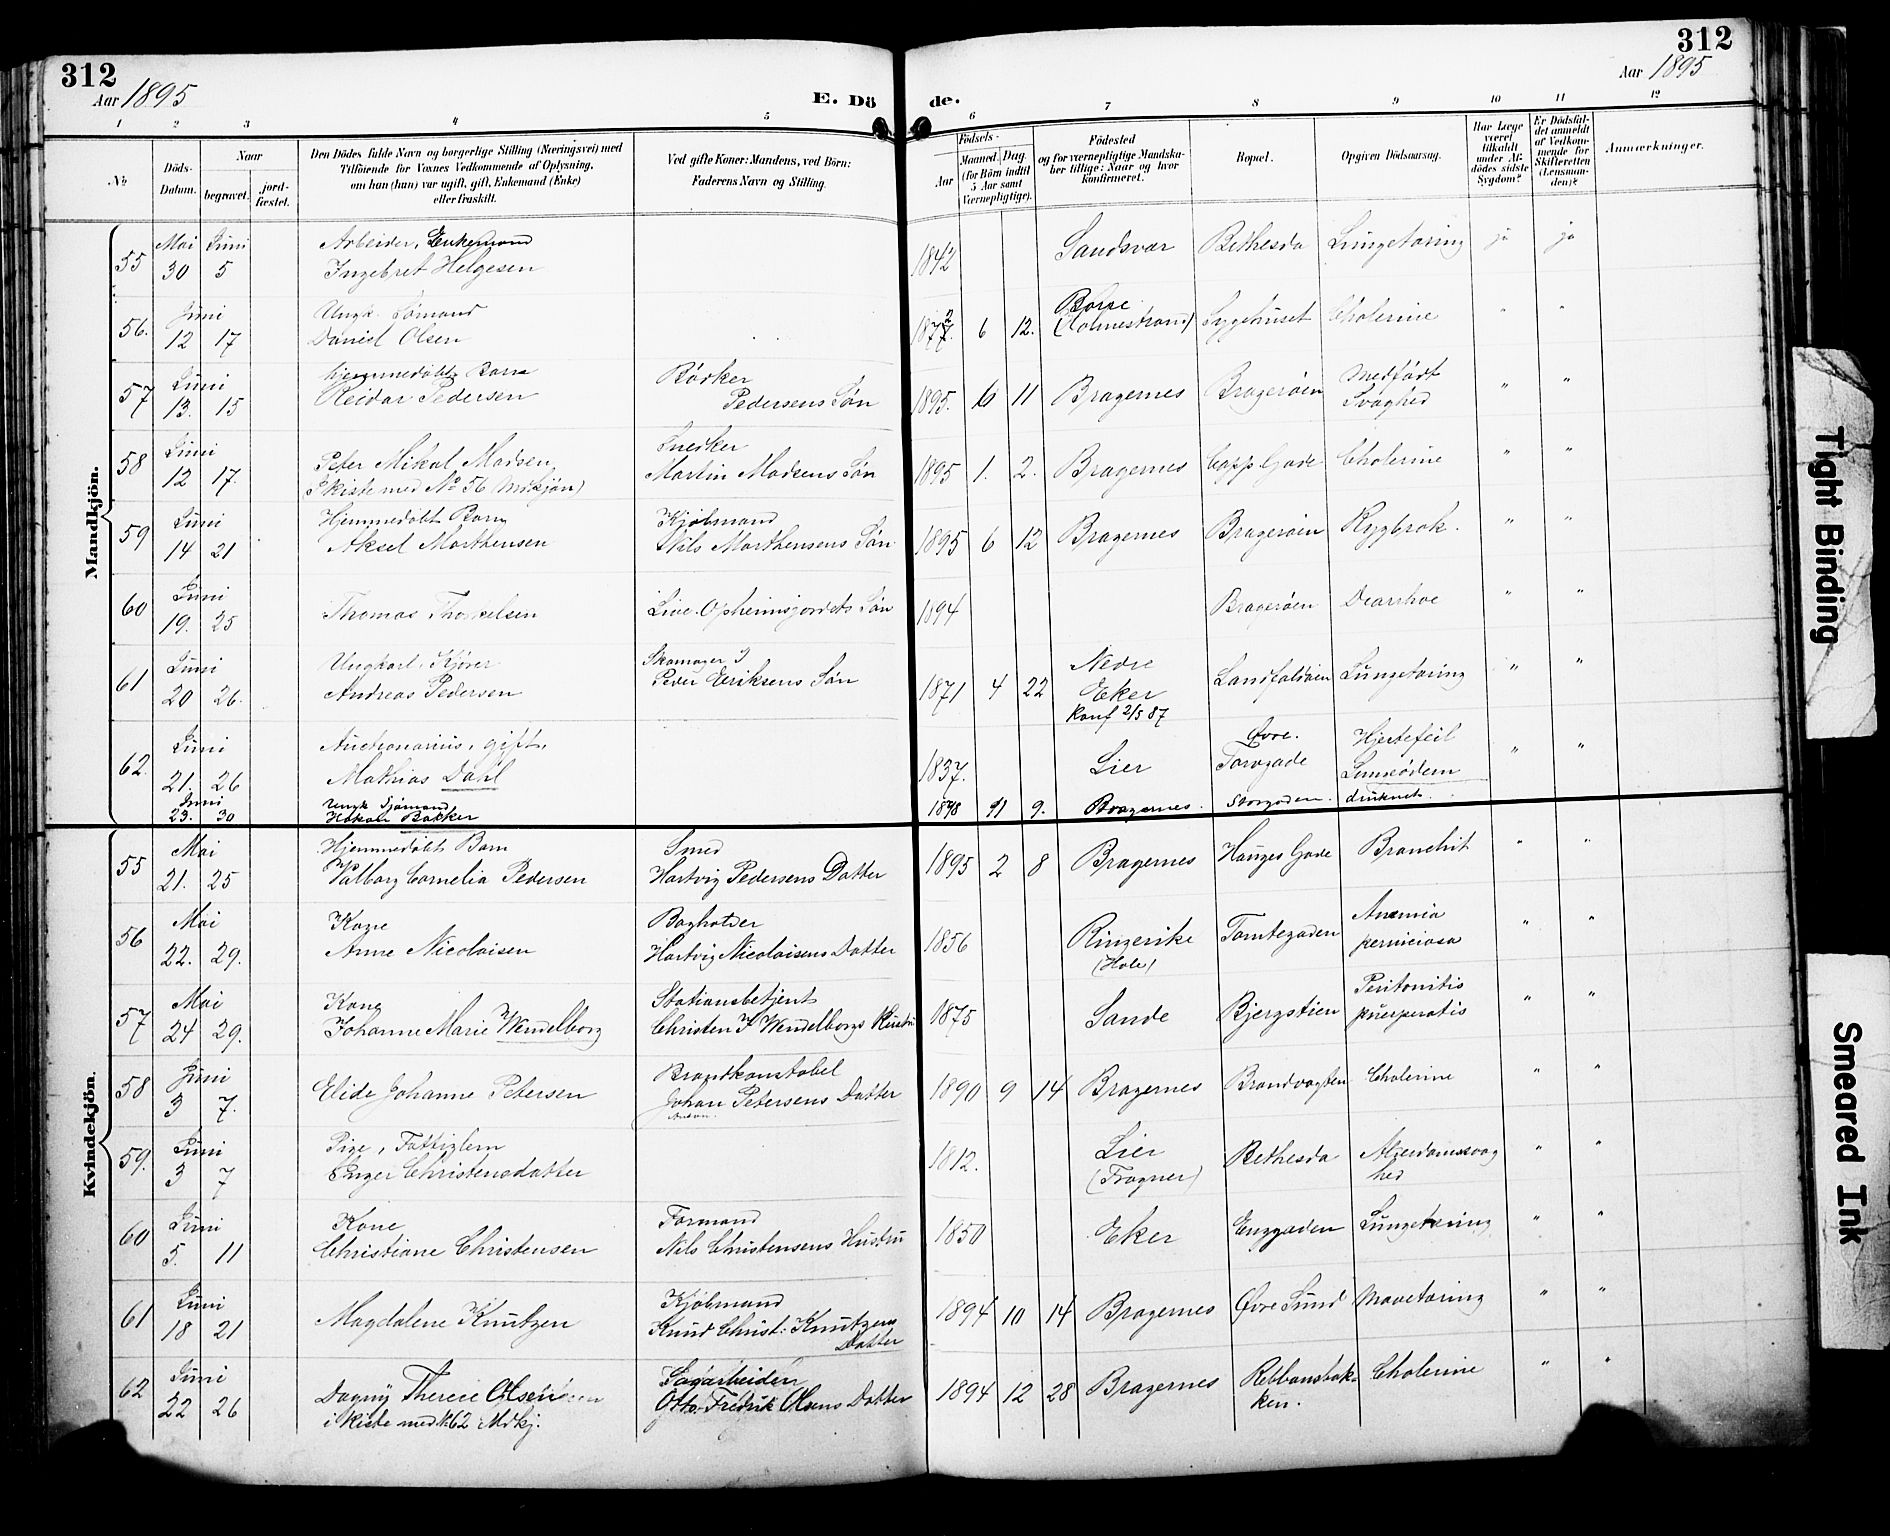 312
312
Aar 1895
E. Dö de.
Aar 1895
1 2 3 4 5 6 7 8 9 10 11 12
No
Döds-
Datum.
Naar
begravet.
jord-
fæstet.
Den Dödes fulde Navn og borgerlige Stilling (Næringsvei) med
Tilföiende for Voxnes Vedkommende af Oplysning,
om han (hun) var ugift, gift, Enkemand (Enke)
eller fraskilt.
Ved gifte Koner: Mandens, ved Börn:
Faderens Navn og Stilling.
Födsels-
Aar
Maaned. Dag.
(for Börn indtil
5 Aar samt
Værnepligtige).
Födested
og for værnepligtige Mandska-
ber tillige: Naar og hvor
konfirmeret.
Bopæl.
Opgiven Dödsaarsag.
Har Læge
været
tilkaldt
under Af-
dödes sidste
Sygdom?
Er Dödsfal-
det anmeldt
af Vedkom-
mende for
Skifteretten
(Lensman-
den)?
Anmærkninger.
Mandkjön.
55 Mai Juni Arbeider, Enkemand
30 5 Ingebret Helgesen 1842 Sandsvær Bethesda Lungetæring ja ja
56. Juni Ungk. Sømand Borre
12 17 Daniel Olsen 1872 6 12. (Holmestrand) Sygehuset Cholerine " "
57 Juni hjemmedøbt Barn Bødker Medfødt
13. 15 Reidar Pedersen Pedersens Søn 1895. 6 11 Bragernes Bragerøen Svaghed " "
58 Juni Snedker
12 17. Peter Mikal Madsen Martin Madsens Søn 1895 1. 2. Bragernes Capp. Gade Cholerine " "
(i Kiste med No 56 M.kjøn)
59 Juni Hjemmedøbt Barn Kjøbmand
14 21 Aksel Marthensen Nils Marthensens Søn 1895 6 12 Bragernes Bragerøen Rygbrok. " "
60 Juni
19. 25 Thomas Thorkelsen Live Opheimsjordets Søn 1894 Bragerøen Diarrhoe " "
61 Juni Ungkarl, Kjører Skomager Nedre
20 26. Andreas Pedersen Peder Eriksens Søn 1871 4 22 Eker Landfaldøen Lungetæring " "
Konf 2/5 87
62. Juni Auctionarius, gift, Øvre. Hjertefeil
21. 26 Mathias Dahl 1837. Lier Torvgade Lungeödem " "
Juni Ungk Sjømand
23. 30 Håkon Backer 1878 11 9. Bragernes. Storgaden. druknet.
Kvindekjön.
55 Mai Hjemmedøbt Barn Smed
21. 25 Valborg Cornelia Pedersen Hartvig Pedersens Datter 1895 2 8 Bragernes Hauges Gade Bronchit " "
56 Mai Kone Bogholder Anæmia
22. 29. Anne Nicolaisen Hartvig Nicolaisens Datter 1856 Ringerike Tomtegaden perniciosa " "
(Hole)
57 Mai Kone Stationsbetjent Peritonitis
24 29. Johanne Marie Wendelborg Christen J Wendelborgs Hustru 1875 Sande Bjergstien puerperalis " "
58 Juni Brandkonstabel
3 7. Elide Johanne Petersen Johan Petersens Datter 1890 9 14 Bragernes Brandvagten Cholerine " "
Anton.
59. Juni Pige, Fattiglem Lier
3 7 Inger Christensdatter 1812. (Frogner) Bethesda Alderdomssvag
hed " "
60 Juni Kone Formand
5. 11 Christiane Christensen Nils Christensens Hustru 1850 Eker Enggaden Lungetæring " "
61 Juni Kjøbmand
18 21 Magdalene Knutzen Knud Christ: Knutzens
Datter 1894 10 14 Bragernes Øvre Sund Mavetæring " "
62 Juni Sagarbeider
22 26 Dagny Therese Olsen Otto Fredrik Olsens Datter 1894 12 28 Bragernes Rebbansbak-
ken. Cholerine " "
i Kiste med N. 62 Mdkj.
Tight Binding
Smeared Ink